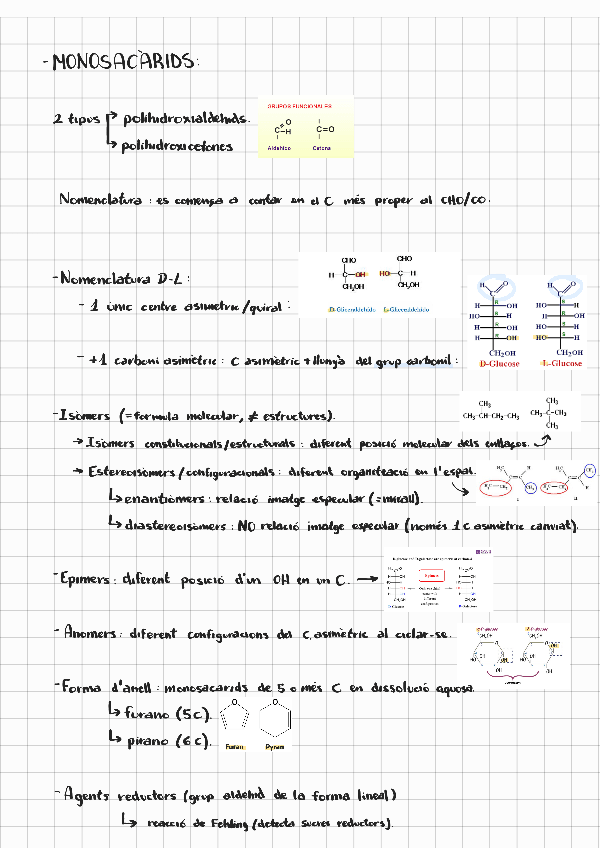 - MONOSACÀRIDS:
2 tipus polihidroxialdehids.
polihidroxicetones
GRUPOS FUNCIONALES
Aldehído Cetona
Nomenclatura: es comença a contar en el C més proper al CHO/CO.
- Nomenclatura D-L:
- 1 únic centre asimetric/quiral:
CHO CHO
H C OH HO C H
CH₂OH CH₂OH
D-Gliceraldehído L-Gliceraldehído
- +1 carboni asimètric: C asimètric + llunyà del grup carbonil:
D-Glucose L-Glucose
- Isòmers (= formula molecular, ≠ estructures).
→ Isòmers constitucionals/estructurals: diferent posició molecular dels enllaços.
CH₃ CH₃
CH₃-CH-CH₂-CH₃ CH₃-C-CH₃
CH₃
→ Estereoisòmers/configuracionals: diferent organització en l'espai.
↳ enantiòmers: relació imatge especular (= mirall).
↳ diastereoisòmers: NO relació imatge especular (només 1 C asimètric canviat).
- Epímers: diferent posició d'un OH en un C. →
- Anòmers: diferent configuracions del C asimètric al ciclar-se.
- Forma d'anell: monosacarids de 5 o més C en dissolució aquosa.
↳ furano (5C).
↳ pirano (6C).
Furan Pyran
- Agents reductors (grup aldehid de la forma lineal)
↳ reacció de Fehling (detecta sucres reductors).